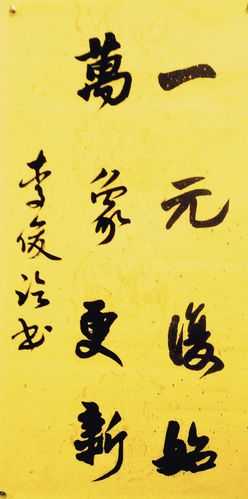 一元復始
萬象更新
李俊
書